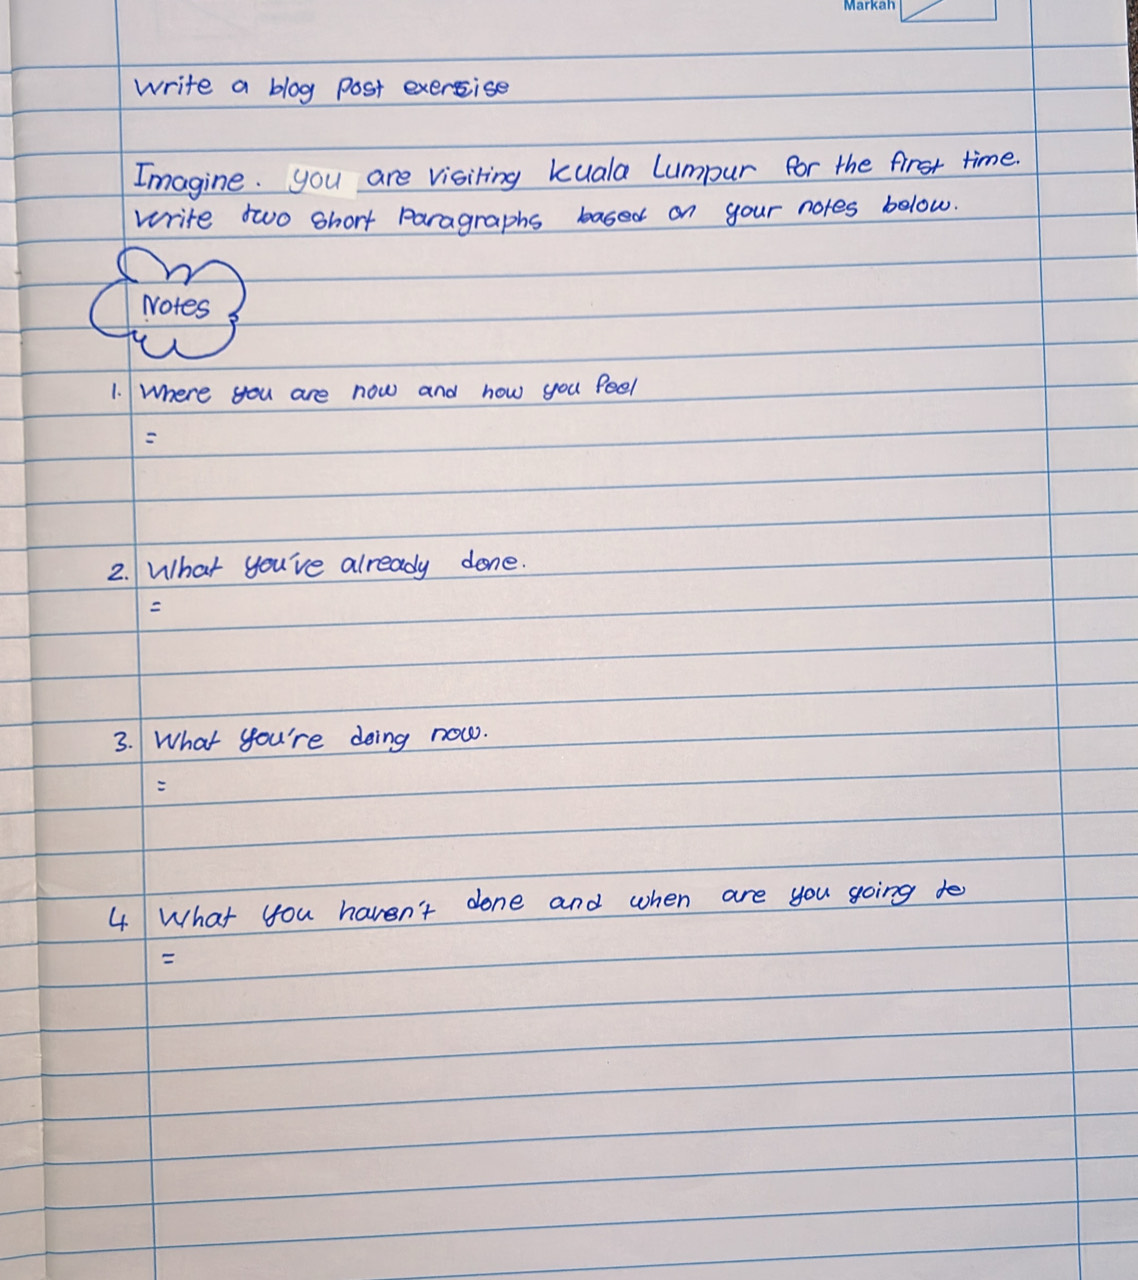 Markah
Write a blog post exercise
Imagine. you are visiting kuala lumpur for the first time.
Write two short paragraphs based on your notes below.
Notes
1. Where you are now and how you feel
=
2. What you've already done.
=
3. What you're doing now.
=
4 What you haven't done and when are you going to
=